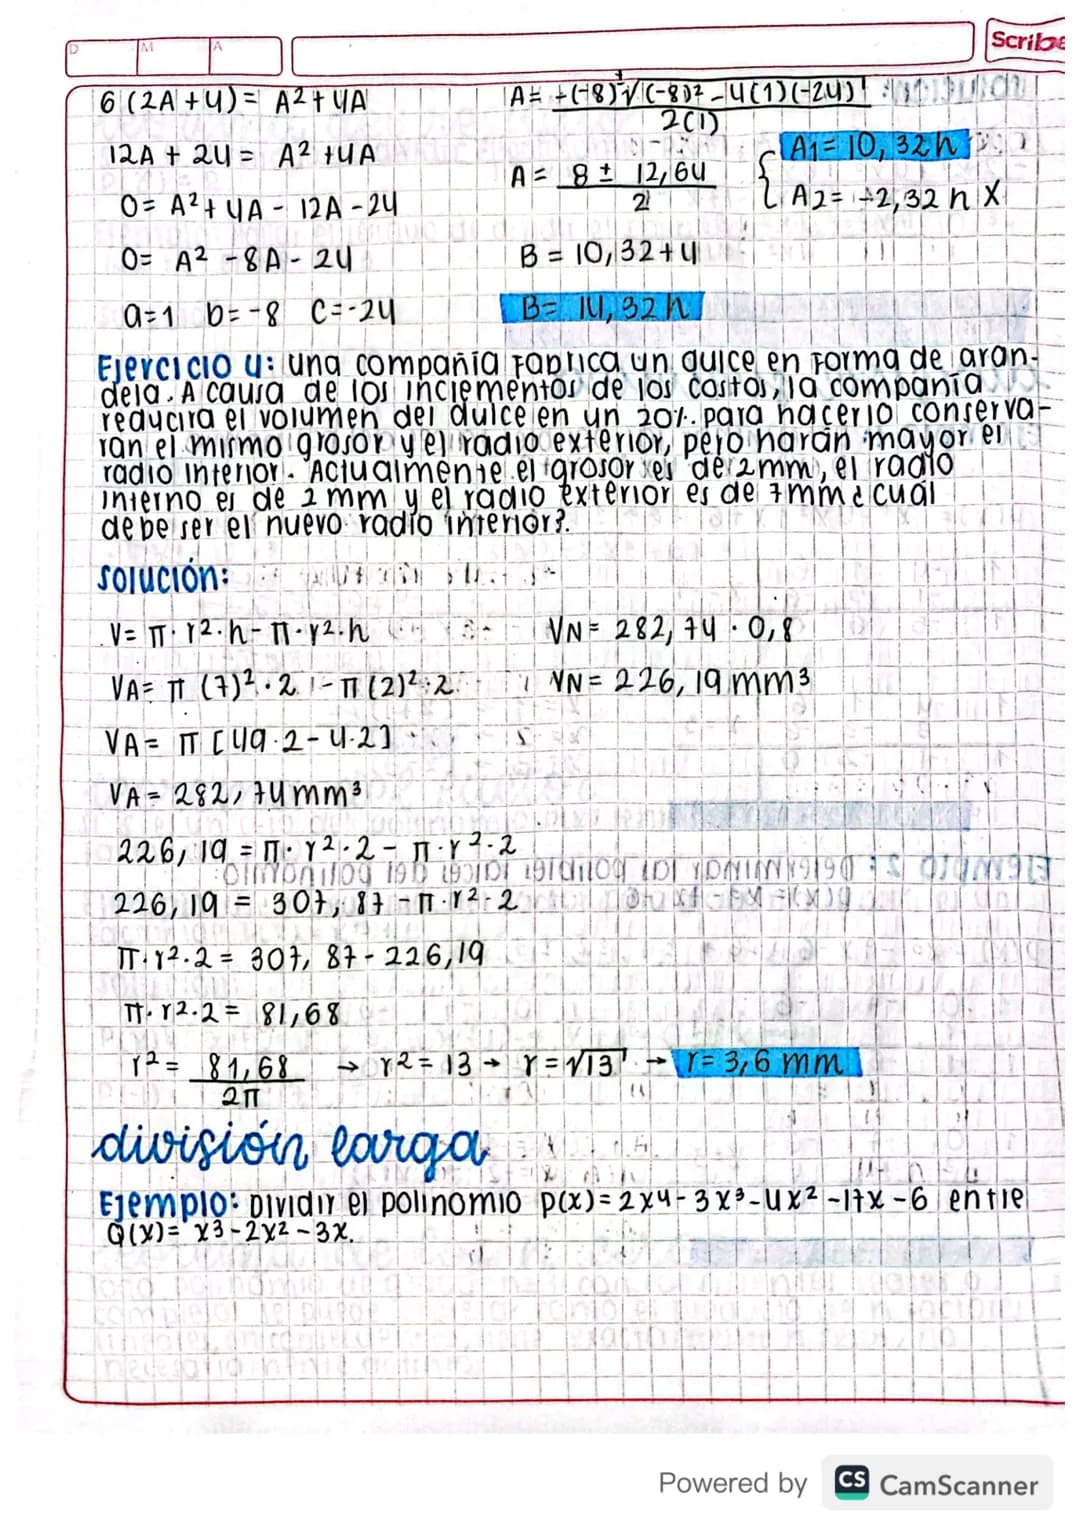 D M A
Scribe
6(2A+4) = A² + 4A
12A + 24 = A² + 4A
0 = A² + 4A - 12A - 24
0 = A² - 8A - 24
a=1 b=-8 C=-24
A = +(-8) ± √(-8)² - 4(1)(-24) / 2(1)
A = 8 ± 12,64 / 2
A1 = 10,32h
A2 = -2,32 h X
B = 10,32+4
B = 14,32 h
Ejercicio 4: una compañía fabrica un dulce en forma de aran-
dela. A causa de los incrementos de los costos, la compañía
reducira el volumen del dulce en un 20%. para hacerlo conserva-
ran el mismo grosor y el radio exterior, pero harán mayor el
radio interior. Actualmente el grosor es de 2mm, el radio
interno es de 2 mm y el radio exterior es de 7mm ¿ cuál
debe ser el nuevo radio interior?.
solución:
V = π·r²·h - π·r²·h
VA = π (7)²·2 - π(2)²·2
VA = π [49·2 - 4·2]
VA = 282,74mm³
VN = 282,74 · 0,8
VN = 226,19 mm³
226,19 = π·r²·2 - π·r²·2
226,19 = 307,87 - π·r²·2
π·r²·2 = 307,87 - 226,19
π·r²·2 = 81,68
r² = 81,68 / 2π → r² = 13 → r = √13 → r = 3,6 mm
división larga
Ejemplo: Dividir el polinomio p(x) = 2x4 - 3x³ - 4x² - 17x - 6 entre
Q(x) = x3 - 2x2 - 3x.
Powered by CS CamScanner